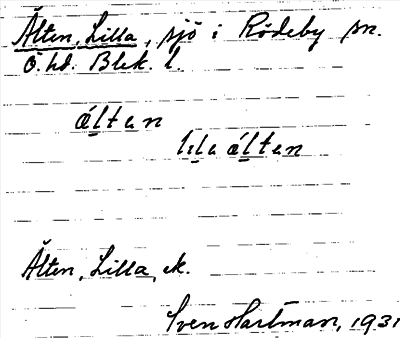 Älten, Lilla, sjö i Rödeby sn.
Ö. hd. Blek. l.
álten
lıla álten
Älten, Lilla, ek.
Sven Hartman, 1931